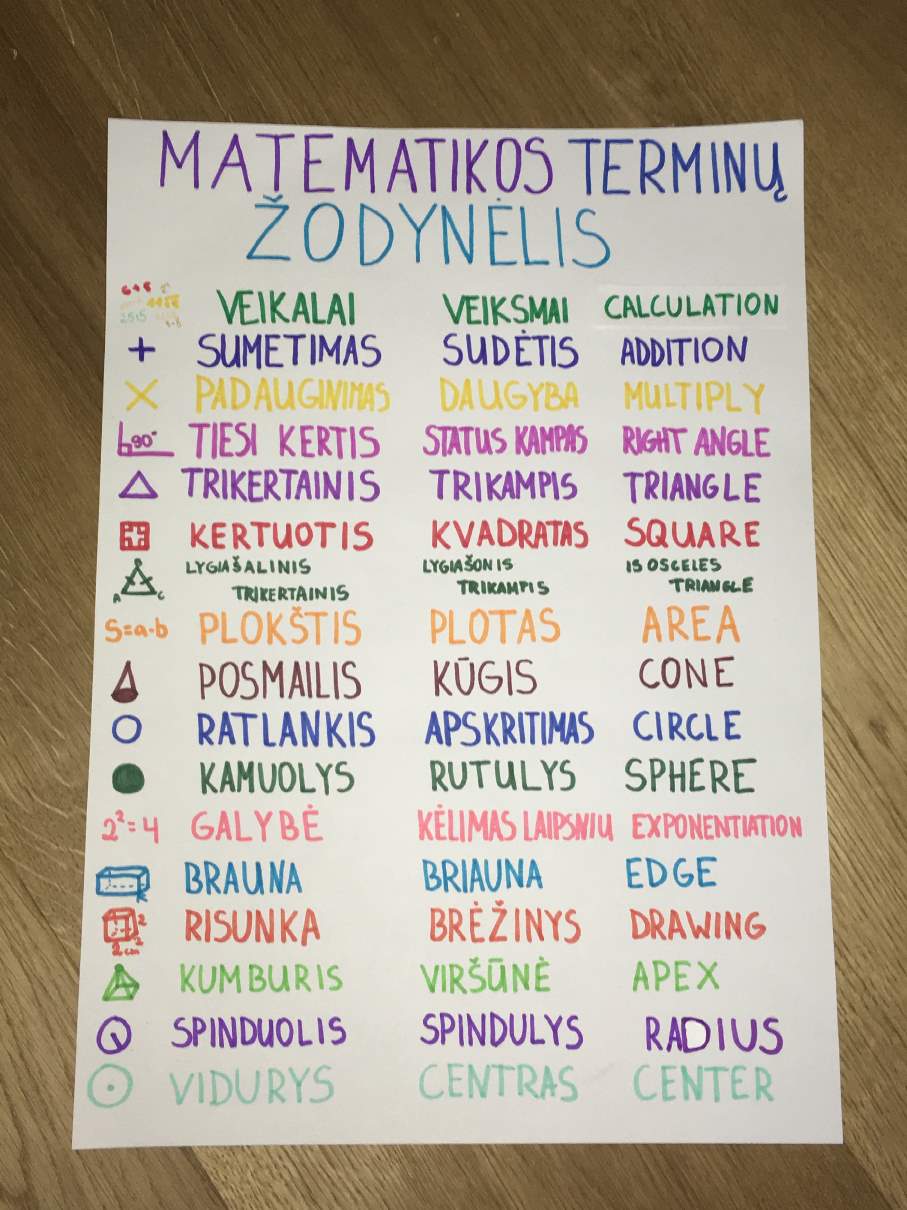 MATEMATIKOS TERMINŲ
ŽODYNĖLIS
VEIKALAI VEIKSMAI CALCULATION
+ SUMETIMAS SUDĖTIS ADDITION
× PADAUGINIMAS DAUGYBA MULTIPLY
90° TIESI KERTIS STATUS KAMPAS RIGHT ANGLE
TRIKERTAINIS TRIKAMPIS TRIANGLE
KERTUOTIS KVADRATAS SQUARE
LYGIAŠALINIS LYGIAŠONIS ISOSCELES
A C TRIKERTAINIS TRIKAMPIS TRIANGLE
S=a·b PLOKŠTIS PLOTAS AREA
POSMAILIS KŪGIS CONE
RATLANKIS APSKRITIMAS CIRCLE
KAMUOLYS RUTULYS SPHERE
2²=4 GALYBĖ KĖLIMAS LAIPSNIU EXPONENTIATION
BRAUNA BRIAUNA EDGE
RISUNKA BRĖŽINYS DRAWING
2cm
KUMBURIS VIRŠŪNĖ APEX
SPINDUOLIS SPINDULYS RADIUS
VIDURYS CENTRAS CENTER